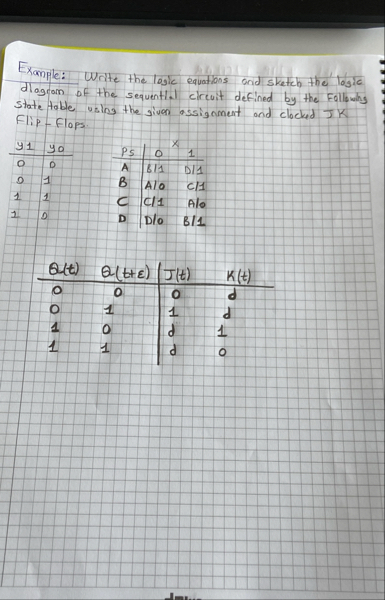 Example: Write the logic equations and sketch the logic
diagram of the sequential circuit defined by the following
state table using the given assignment and clocked JK
Flip-Flops.
y1 y0
0 0
0 1
1 1
1 0
X
PS 0 1
A B/1 D/1
B A/0 C/1
C C/1 A/0
D D/0 B/1
Q(t) Q(t+ε) J(t) K(t)
0 0 0 d
0 1 1 d
1 0 d 1
1 1 d 0